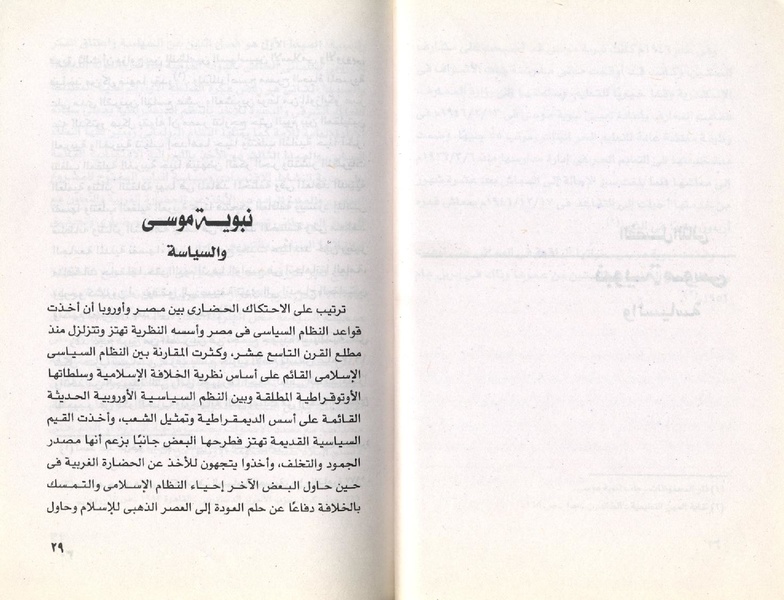 نبويـــة موسـى
والسياسة
ترتيب على الاحتكاك الحضارى بين مصر وأوروبا أن أخذت
قواعد النظام السياسى فى مصر وأسسه النظرية تهتز وتتزلزل منذ
مطلع القرن التاسع عشر، وكثرت المقارنة بين النظام السياسى
الإسلامى القائم على أساس نظرية الخلافة الإسلامية وسلطاتها
الأوتوقراطية المطلقة وبين النظم السياسية الأوروبية الحديثة
القائمة على أسس الديمقراطية وتمثيل الشعب، وأخذت القيم
السياسية القديمة تهتز فطرحها البعض جانبًا بزعم أنها مصدر
الجمود والتخلف، وأخذوا يتجهون للأخذ عن الحضارة الغربية فى
حين حاول البعض الآخر إحياء النظام الإسلامى والتمسك
بالخلافة دفاعًا عن حلم العودة إلى العصر الذهبى للإسلام وحاول
٢٩